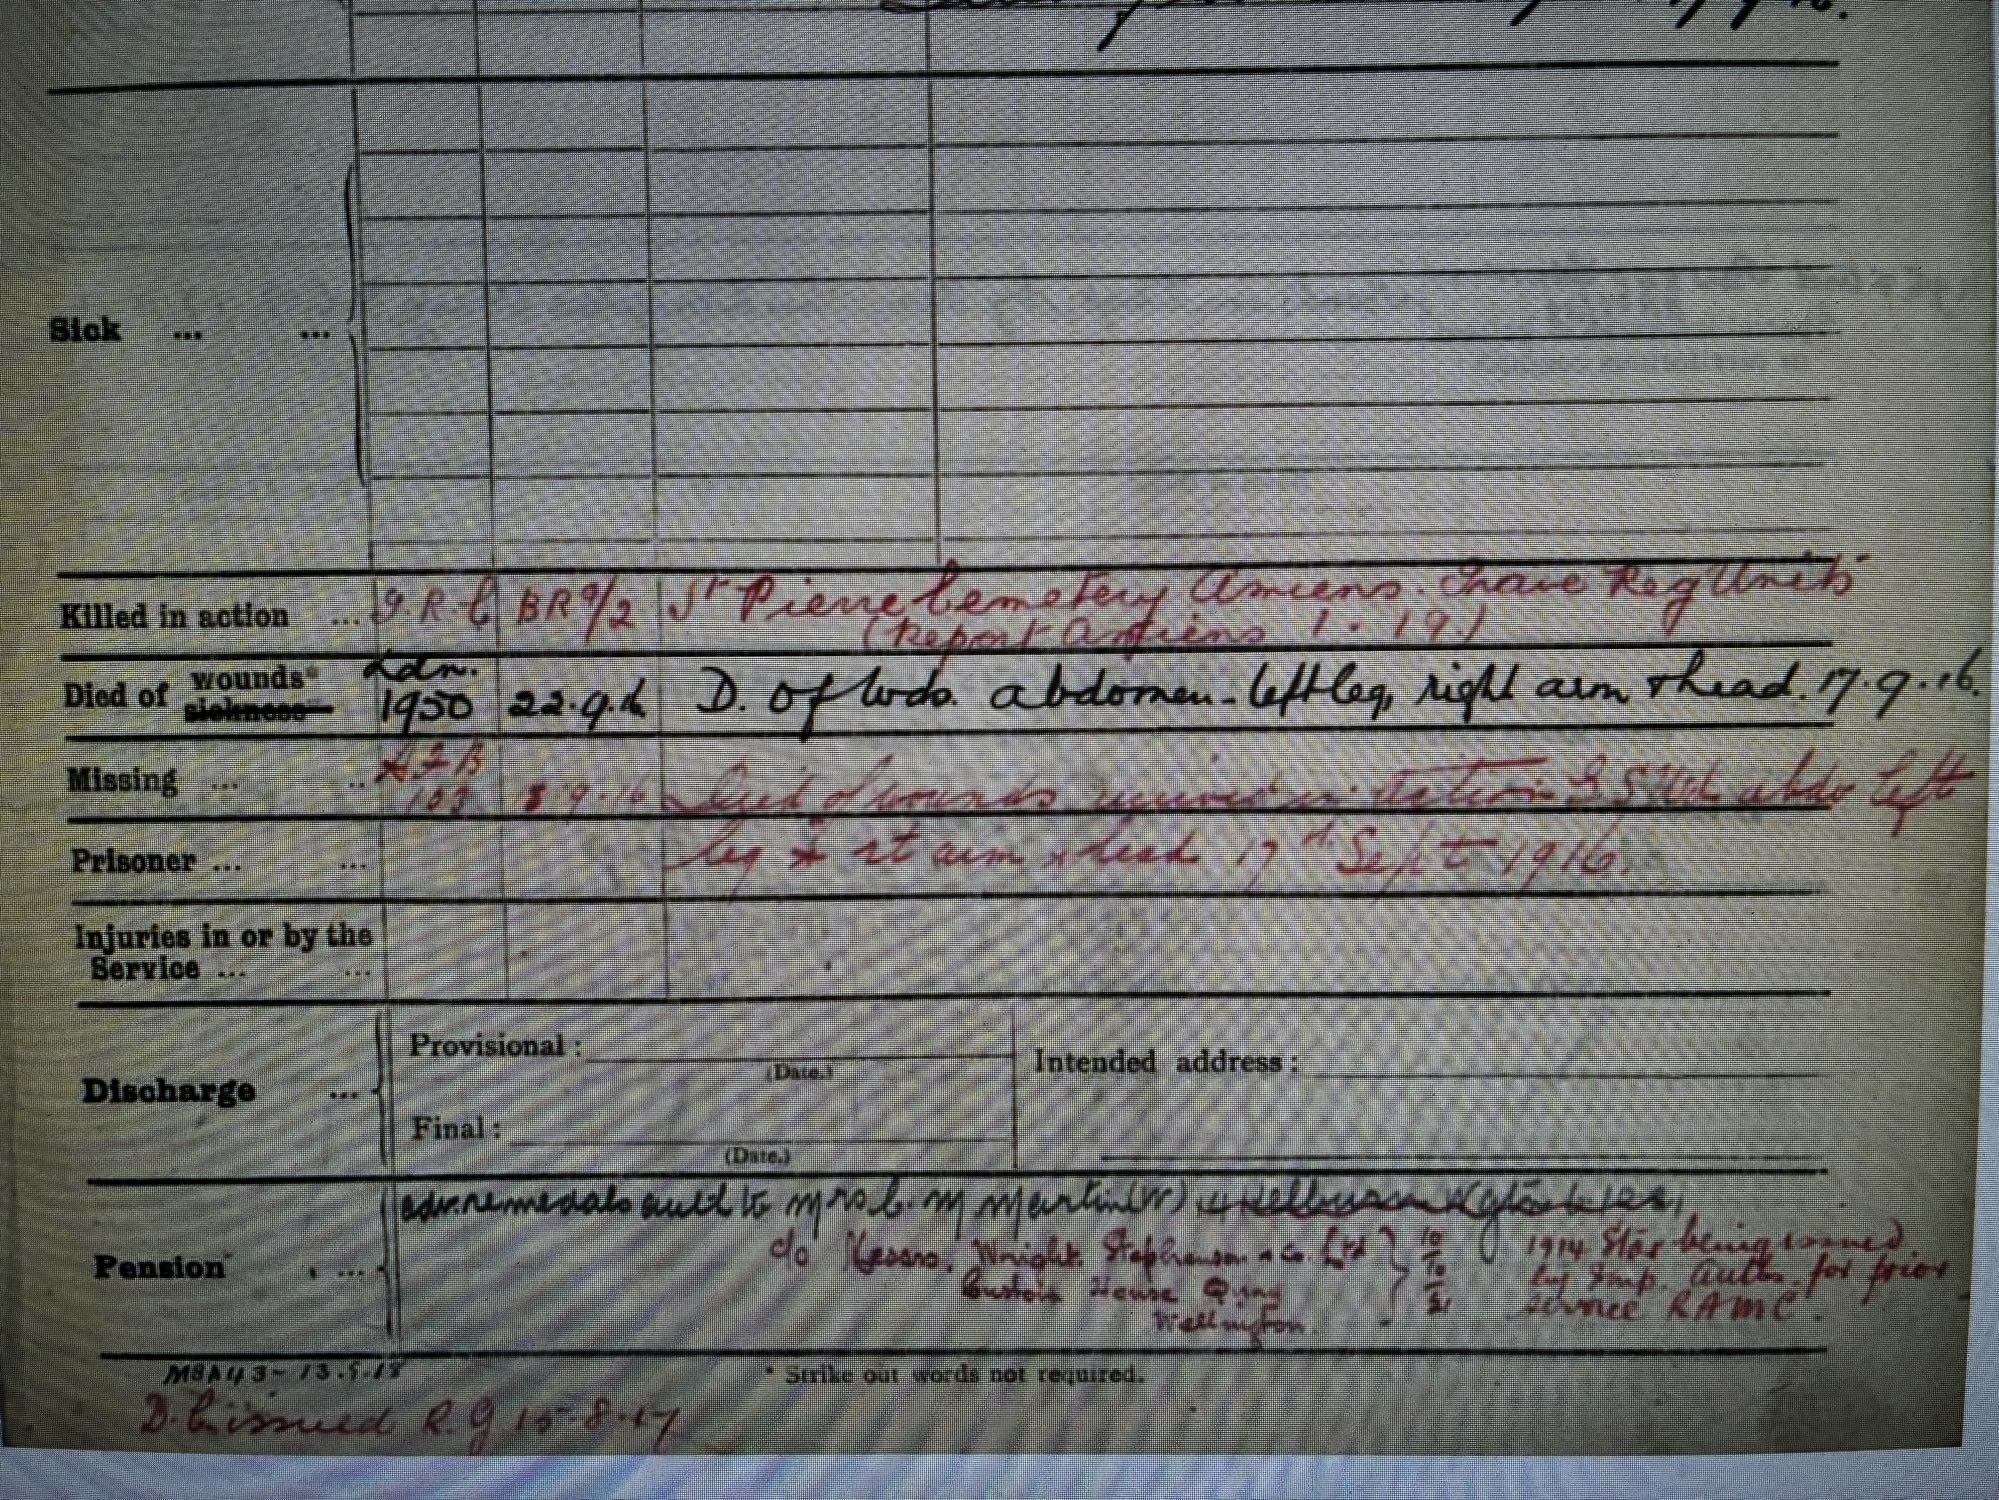 Sick ... ...
Killed in action ... G.R.C BR 9/2 St Pierre Cemetery Amiens. Grave Reg Units
(Report Amiens 1.19.)
Ldn.
Died of wounds* sickness 1950 22.9.16 D. of Wds. abdomen - left leg, right arm & head. 17.9.16.
Missing ... .. A.F.B 103 9.16 Died of wounds received in action abdo left
Prisoner ... ... leg & rt arm & head 17th Sept 1916.
Injuries in or by the
Service ... ...
Discharge ... Provisional : (Date.) Intended address :
Final : (Date.)
Pension ... medals to Mrs C. M Martin (W) 14 Kelburn
c/o Messrs. Wright Stephenson & Co. Ltd
Custom House Quay
Wellington.
10/10/21
1914 Star being issued
by Imp. Auths. for prior
service RAMC.
MSA43 - 13.5.18
* Strike out words not required.
D.C issued R.G 15.8.17